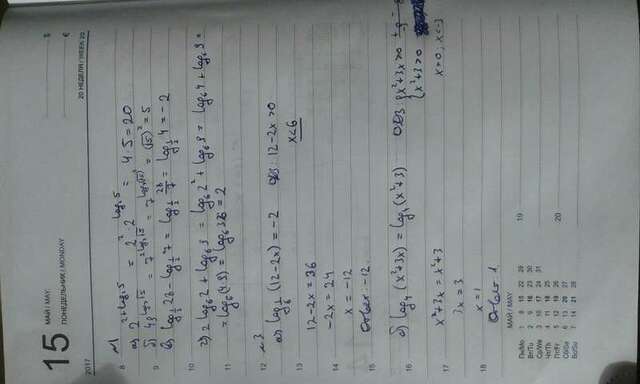 15
МАЙ / MAY
ПОНЕДЕЛЬНИК / MONDAY
2017
20 НЕДЕЛИ / WEEK 20
$
€
8
а) 2^(2+log₂5) = 2² · 2^(log₂5) = 4·5=20
9
в) log_(1/2) 28 - log_(1/2) 7 = log_(1/2) 28/7 = log_(1/2) 4 = -2
10
г) 2 log₆2 + log₆9 = log₆2² + log₆9 = log₆4 + log₆9 =
11
= log₆(4·9) = log₆36 = 2
12
а) log_(1/6) (12-2x) = -2 ОДЗ: 12-2x>0
13
x<6
12-2x=36
14
-2x=24
x=-12
15
Ответ -12.
16
б) log₄ (x²+3x) = log₄ (x²+3) ОДЗ {x²+3x>0
{x²+3>0
17
x²+3x=x²+3 x>0; x<-3
3x=3
18
x=1
Ответ 1
МАЙ / MAY
Пн/Mo 1 8 15 22 29
Вт/Tu 2 9 16 23 30
Ср/We 3 10 17 24 31
Чт/Th 4 11 18 25
Пт/Fr 5 12 19 26
Сб/Sa 6 13 20 27
Вс/Su 7 14 21 28
19
20